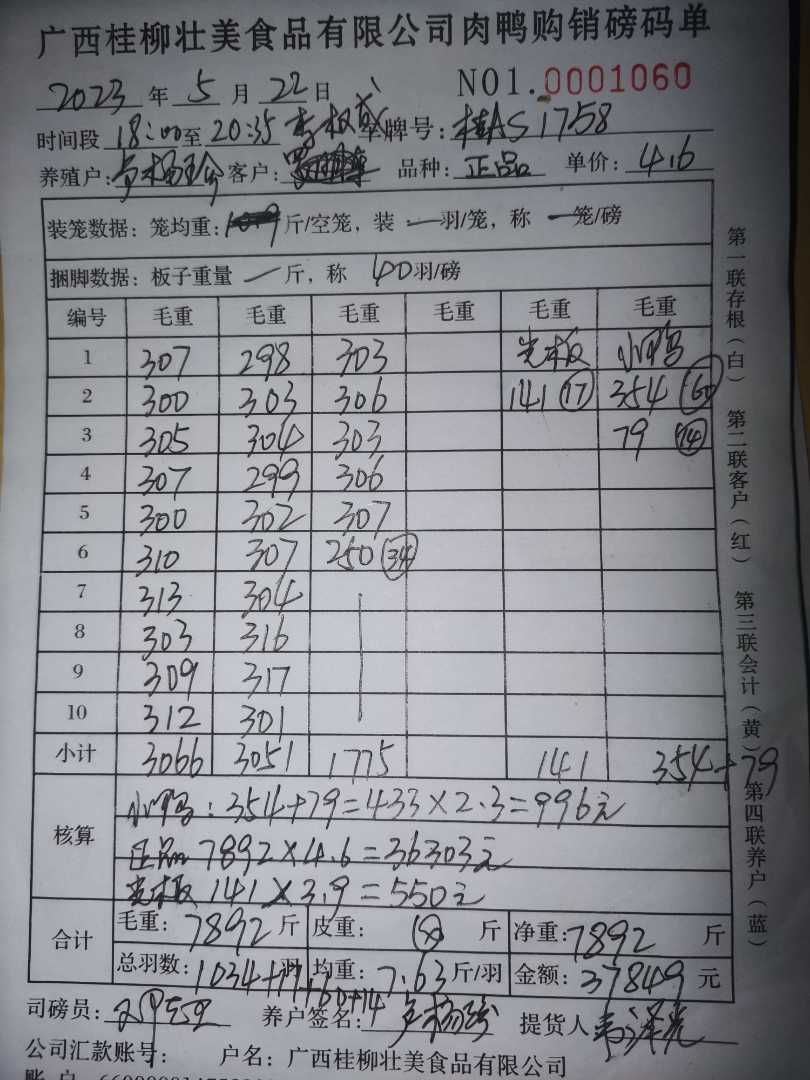 广西桂柳壮美食品有限公司肉鸭购销磅码单
2023 年 5 月 22 日 NO1.0001060
时间段 18:00 至 20:35 车牌号: 桂AS1758
养殖户: 客户: 品种: 正品 单价: 4.6
装笼数据: 笼均重: 斤/空笼, 装 一 羽/笼, 称 一 笼/磅
捆脚数据: 板子重量 一 斤, 称 40 羽/磅
编号 毛重 毛重 毛重 毛重 毛重 毛重
1 307 298 303 光板 小鸭
2 300 303 306 141 (17) 354 (60)
3 305 304 303 79 (14)
4 307 299 306
5 300 302 307
6 310 307 250 (34)
7 313 304
8 303 316
9 309 317
10 312 301
小计 3066 3051 1775 141 354+79
核算 小鸭: 354+79=433×2.3=996元
正品 7892×4.6=36303元
光板 141×3.9=550元
合计 毛重: 7892 斤 皮重: 斤 净重: 7892 斤
总羽数: 1034+17+60+14 羽 均重: 7.63 斤/羽 金额: 37849 元
司磅员: 养户签名: 提货人
公司汇款账号: 户名: 广西桂柳壮美食品有限公司
第一联存根(白) 第二联客户(红) 第三联会计(黄) 第四联养户(蓝)